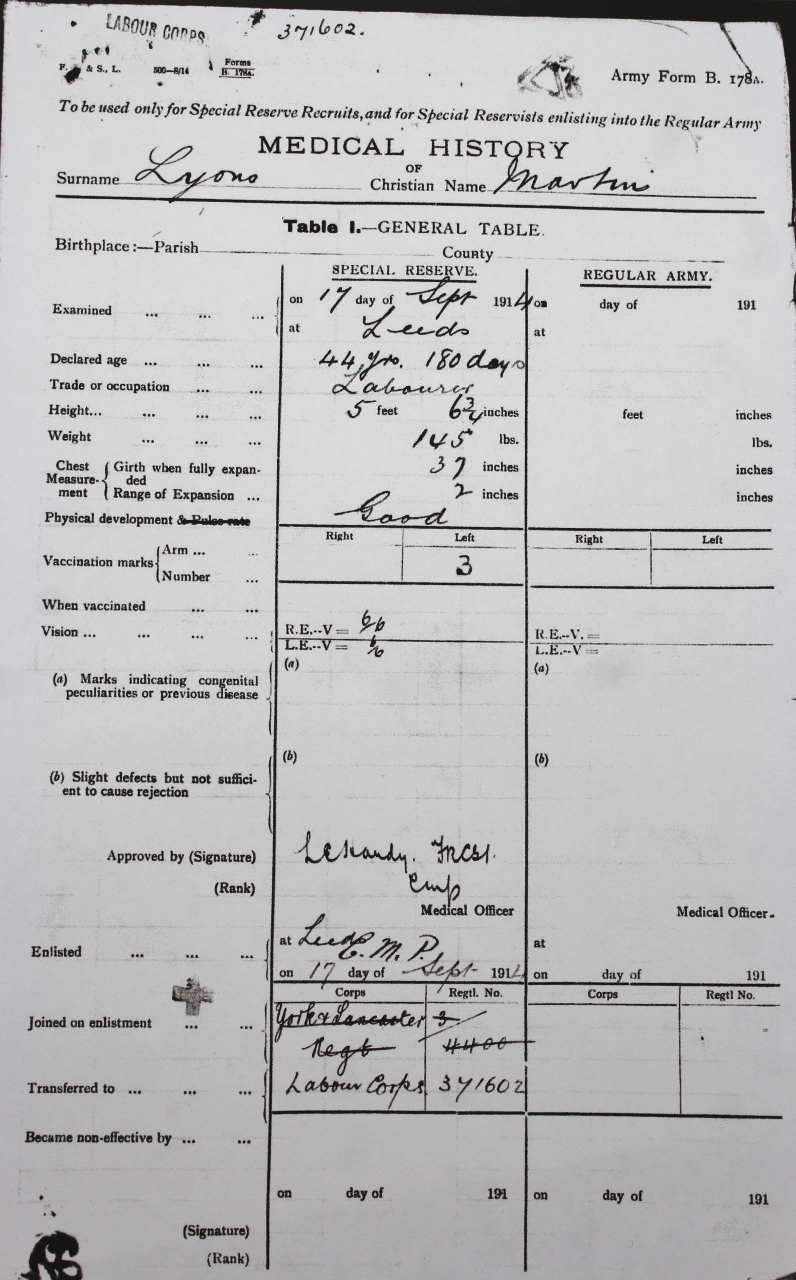 LABOUR CORPS 371602.
& S., L. 500—8/14 Forms B. 178A. Army Form B. 178A.
To be used only for Special Reserve Recruits, and for Special Reservists enlisting into the Regular Army
MEDICAL HISTORY
OF
Surname Lyons Christian Name Martin
Table I.—GENERAL TABLE.
Birthplace:—Parish County
SPECIAL RESERVE. REGULAR ARMY.
Examined ... ... ... on 17 day of Sept 1914 on day of 191
at Leeds at
Declared age ... ... ... 44 yrs. 180 days
Trade or occupation ... ... Labourer
Height... ... ... ... 5 feet 6¾ inches feet inches
Weight ... ... ... 145 lbs. lbs.
Chest Measurement { Girth when fully expanded 37 inches inches
Range of Expansion ... 2 inches inches
Physical development & Pulse rate Good
Right Left Right Left
Vaccination marks { Arm ... ...
Number ... 3
When vaccinated ... ...
Vision ... ... ... ... R.E.--V = 6/6 R.E.--V. =
L.E.--V = 6/6 L.E.--V =
(a) (a)
(a) Marks indicating congenital
peculiarities or previous disease
(b) (b)
(b) Slight defects but not suffici-
ent to cause rejection
Approved by (Signature) Hardy. FRCSI.
(Rank) Cmp
Medical Officer Medical Officer.
Enlisted ... ... ... at Leeds at
C. M. P.
on 17 day of Sept 1914 on day of 191
Corps Regtl. No. Corps Regtl No.
Joined on enlistment ... ... York & Lancaster 3/
Regt 4400
Transferred to ... ... ... Labour Corps 371602
Became non-effective by ... ...
on day of 191 on day of 191
(Signature)
(Rank)